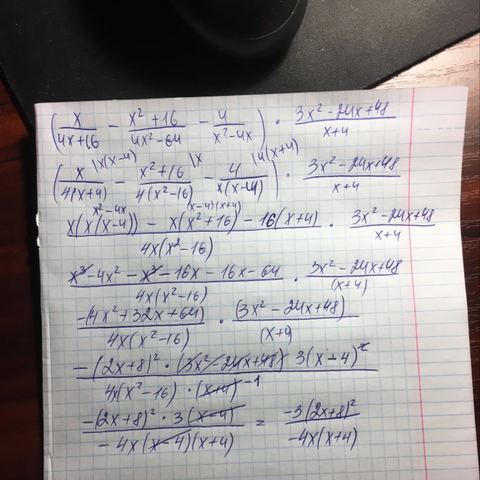 (x/(4x+16) - (x²+16)/(4x²-64) - 4/(x²-4x)) · (3x²-24x+48)/(x+4)
(x/(4(x+4)) |x(x-4) - (x²+16)/(4(x²-16)) |x - 4/(x(x-4)) |4(x+4)) · (3x²-24x+48)/(x+4)
x²-4x (x-4)(x+4)
(x(x(x-4)) - x(x²+16) - 16(x+4))/(4x(x²-16)) · (3x²-24x+48)/(x+4)
(x³-4x²-x³-16x-16x-64)/(4x(x²-16)) · (3x²-24x+48)/(x+4)
(-(4x²+32x+64))/(4x(x²-16)) · (3x²-24x+48)/(x+4)
(-(2x+8)² · (3x²-24x+48) 3(x-4)²)/(4x(x²-16) · (x+4) -1)
(-(2x+8)² · 3(x-4))/(-4x(x-4)(x+4)) = (-3(2x+8)²)/(-4x(x+4))